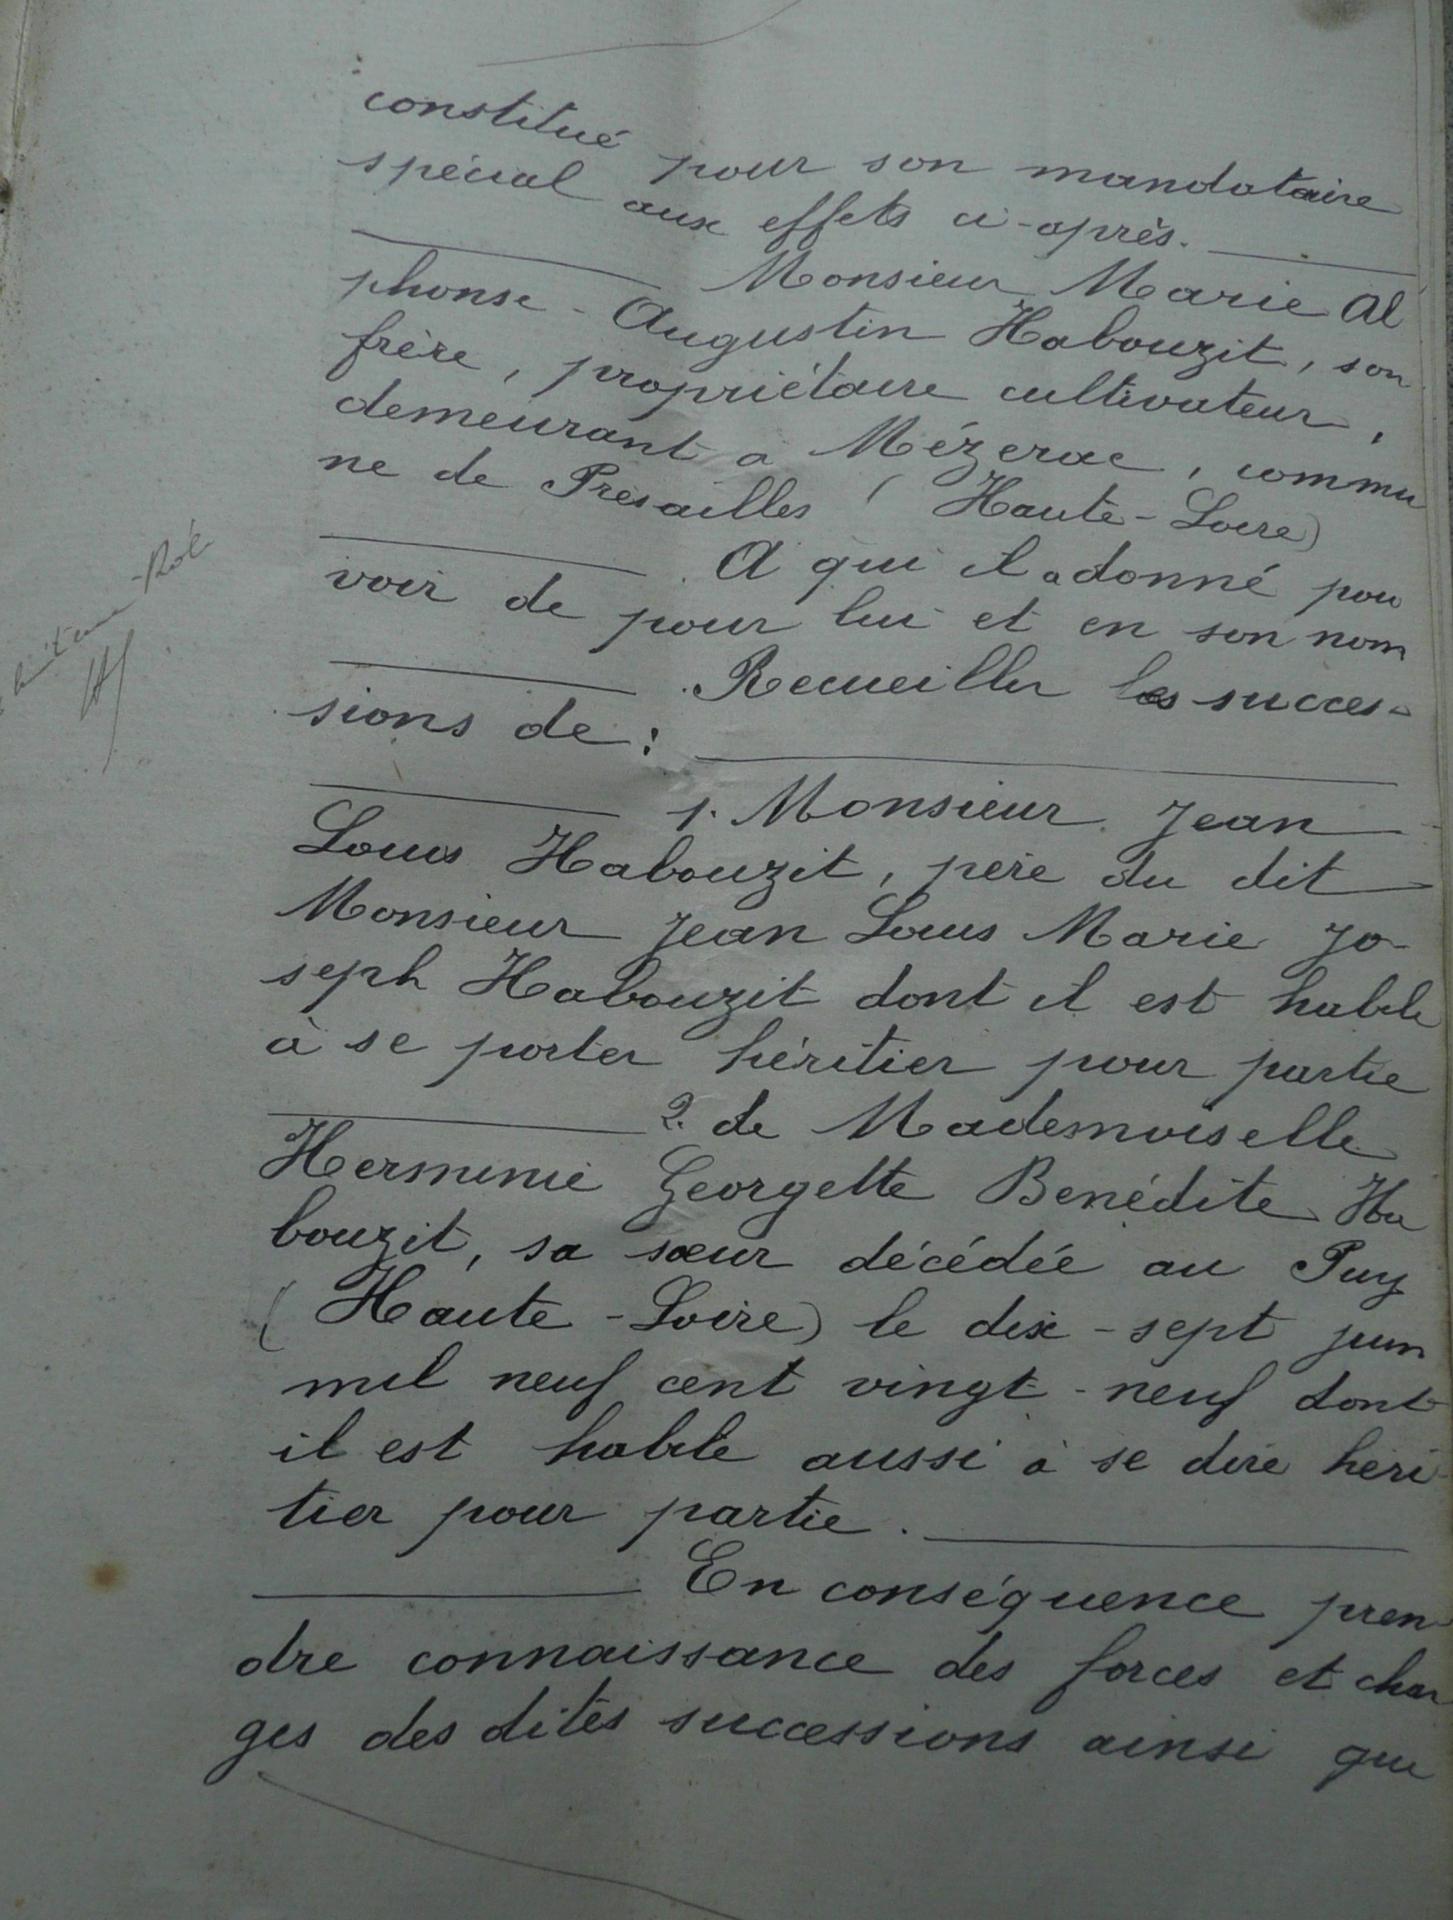 constitué pour son mandataire
spécial aux effets ci-après.
Monsieur Marie Al
phonse - Augustin Habouzit, son
frère, propriétaire cultivateur,
demeurant a Mézerac, commu
ne de Présailles (Haute-Loire)
A qui il a donné pou
voir de pour lui et en son nom
Recueillir les succes-
sions de :
1. Monsieur Jean
Louis Habouzit, père du dit
Monsieur Jean Louis Marie Jo-
seph Habouzit dont il est habile
à se porter héritier pour partie
2. de Mademoiselle
Herminie Georgette Benédite Ha
bouzit, sa sœur décédée au Puy
(Haute-Loire) le dix-sept juin
mil neuf cent vingt-neuf dont
il est habile aussi à se dire héri
tier pour partie.
En conséquence pren
dre connaissance des forces et char
ges des dites successions ainsi que